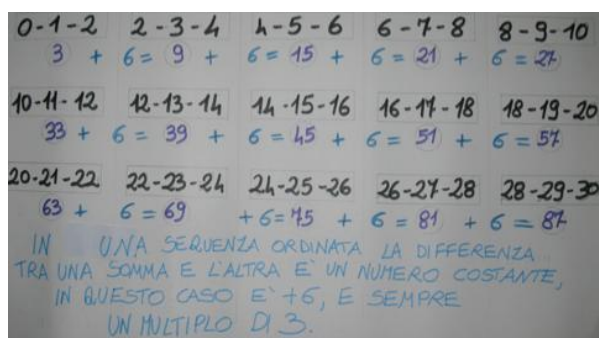 0-1-2 2-3-4 4-5-6 6-7-8 8-9-10
3 + 6 = 9 + 6 = 15 + 6 = 21 + 6 = 27
10-11-12 12-13-14 14-15-16 16-17-18 18-19-20
33 + 6 = 39 + 6 = 45 + 6 = 51 + 6 = 57
20-21-22 22-23-24 24-25-26 26-27-28 28-29-30
63 + 6 = 69 + 6 = 75 + 6 = 81 + 6 = 87
IN UNA SEQUENZA ORDINATA LA DIFFERENZA
TRA UNA SOMMA E L'ALTRA E' UN NUMERO COSTANTE,
IN QUESTO CASO E' +6, E SEMPRE
UN MULTIPLO DI 3.